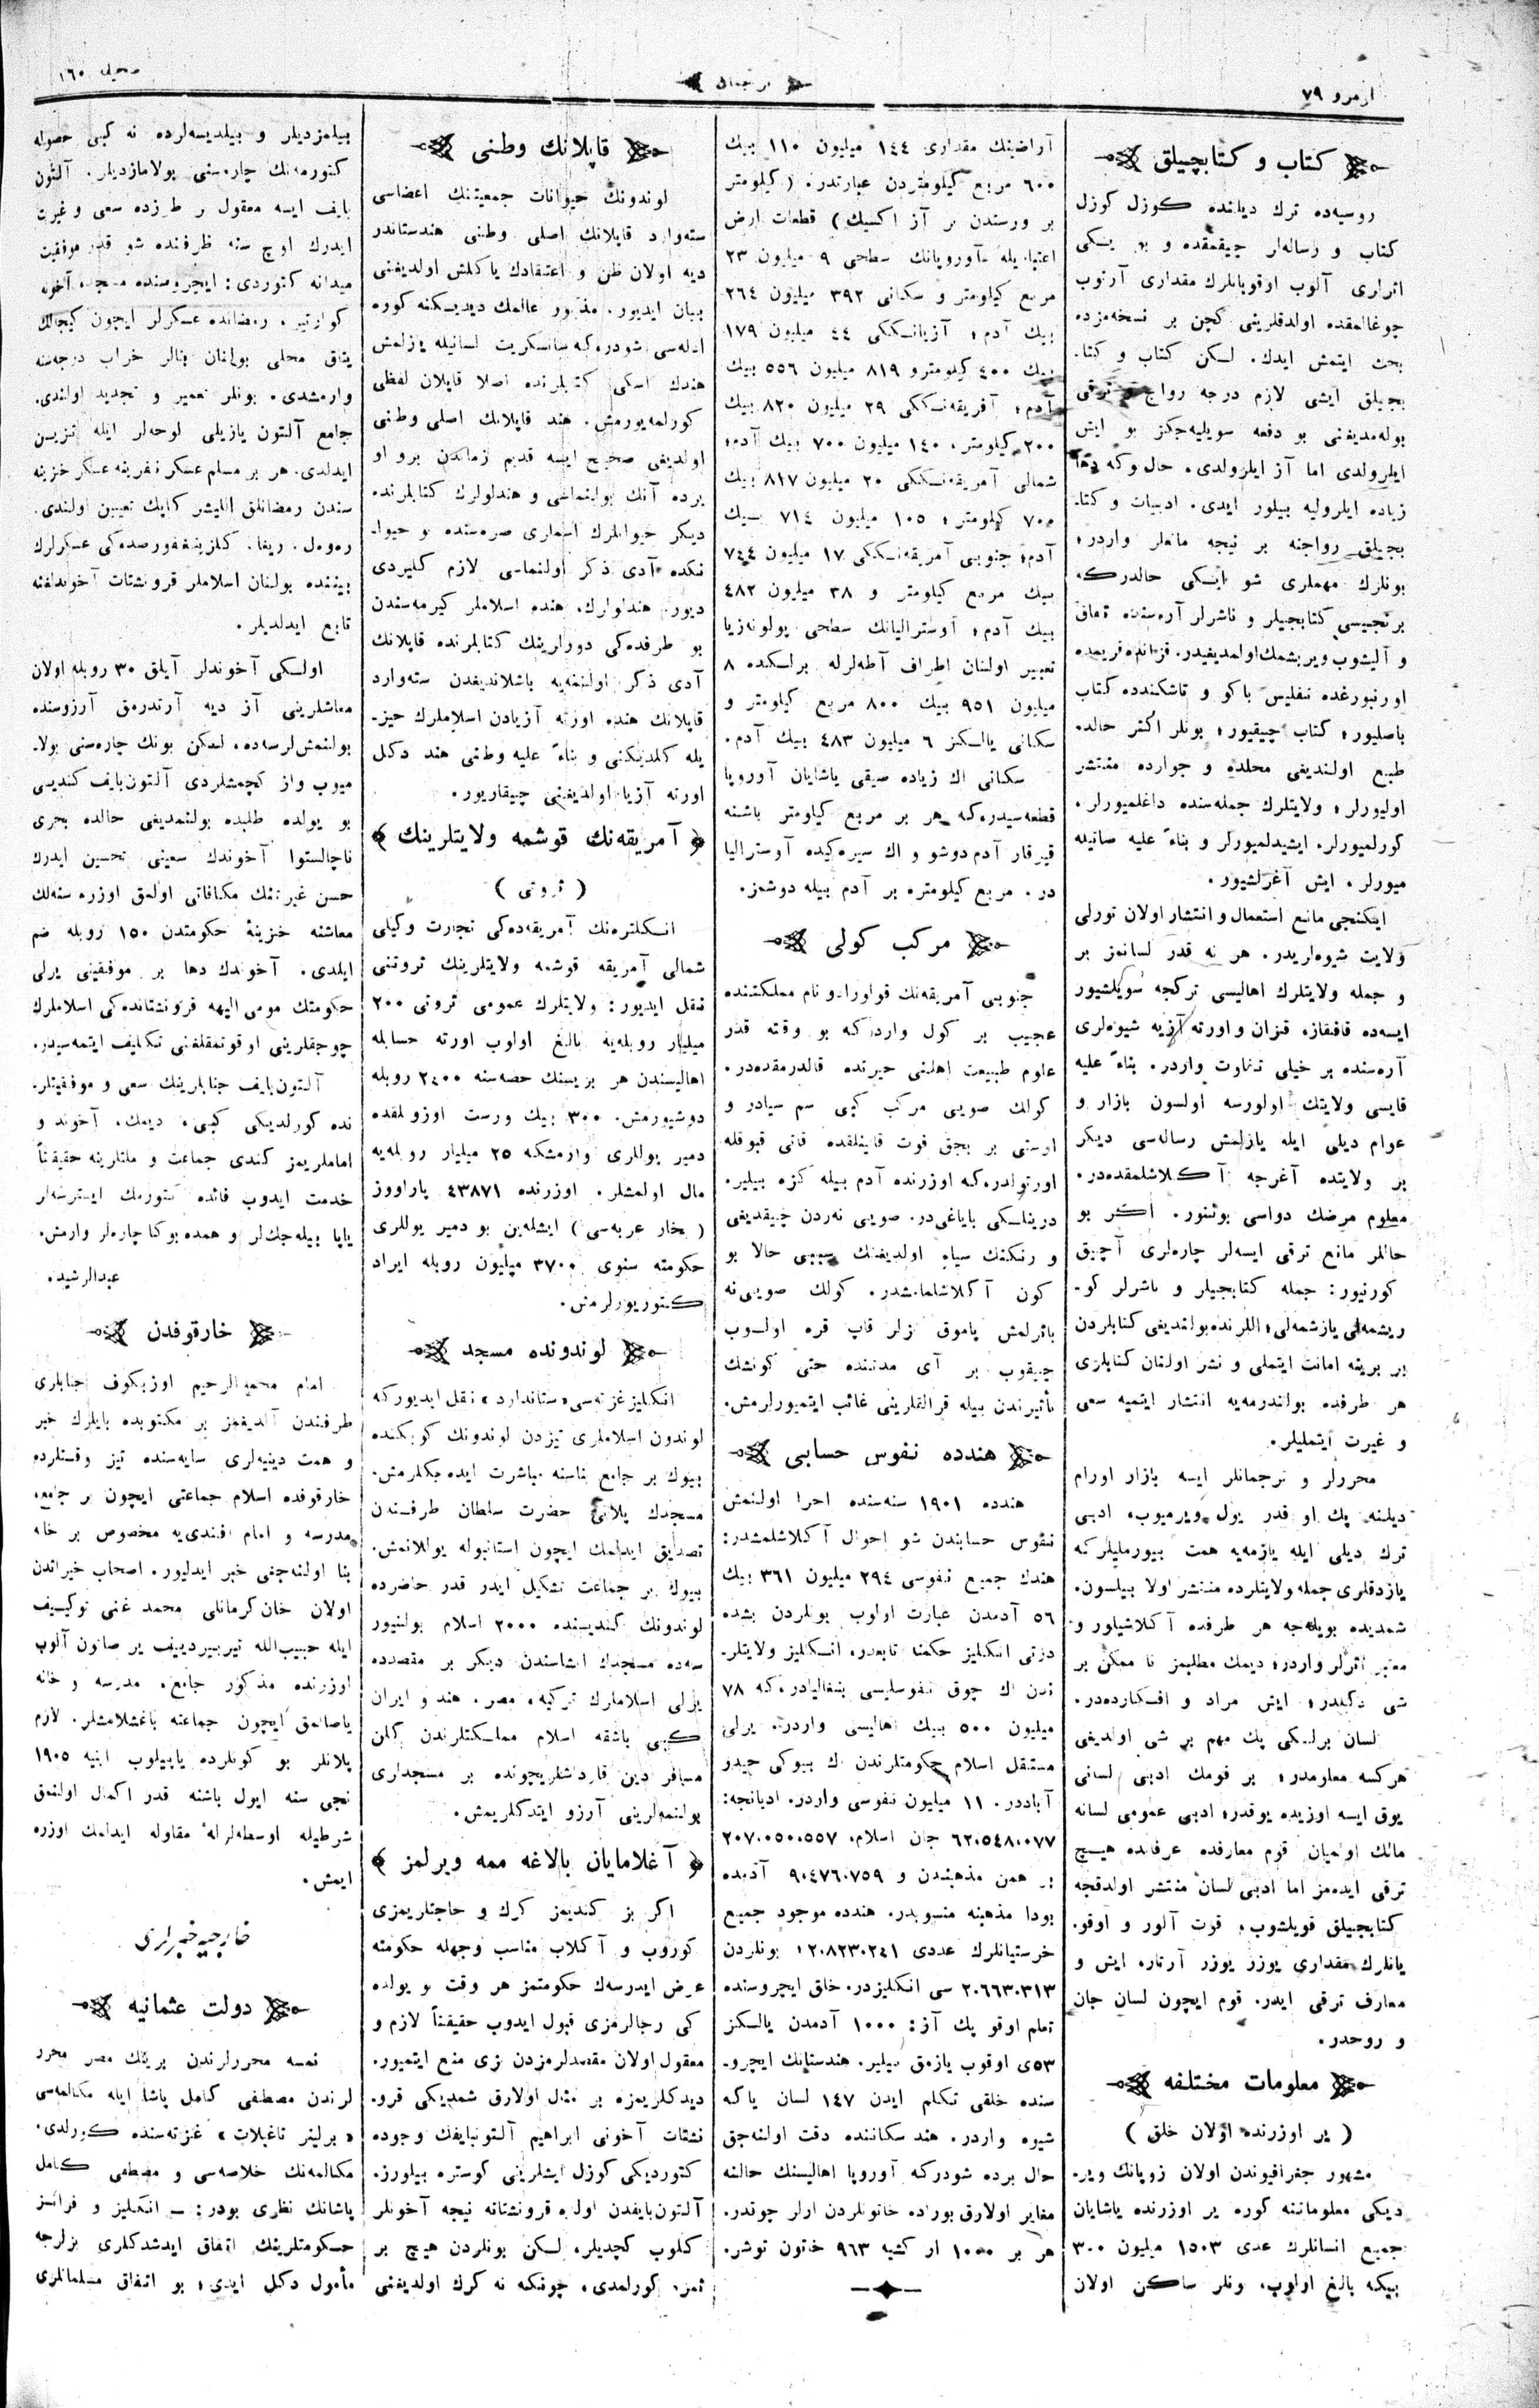 نومرو ٧٩
ترجمان
صحيفه ١٦٠
كتاب و كتابچيلق
روسيه‌ده ترك ديلنده كوزل كوزل
كتاب و رساله‌لر چيقمقده و بو يـكى
اثرلرى آلوب اوقويانلرك مقدارى آرتوب
چوغالمقده اولدقلرينى كچن بر نسخه‌مزده
بحث ايتمش ايدك. لـكن كتاب و كتا-
بجيلق ايشى لازم درجه رواج و ترقى
بوله‌مديغنى بو دفعه سويليه‌جكز بو ايش
ايلرولدى اما آز ايلرولدى. حال وكه دها
زياده ايلروليه بيلور ايدى. ادبيات و كتا-
بجيلق رواجنه بر نيجه مانعلر واردر؛
بونلرك مهملرى شو ايـكى حالدركه
برنجيسى كتابجيلر و ناشرلر آره‌سنده تعاق
و آليشوب ويريشمك اولمديغيدر. قزانده قريمده
اورنبورغده تفليس باكو و تاشكندده كتاب
باصليور؛ كتاب چيقيور؛ بونلر اكثر حالده
طبع اولنديغى محلده و جوارده منتشر
اوليورلر؛ ولايتلرك جمله‌سنده داغلميورلر.
كورلميورلر. ايشيدلميورلر و بناءً عليه صاتيله
ميورلر. ايش آغرلشيور.
ايكنجى مانع استعمال و انتشار اولان تورلى
ولايت شيوه‌لريدر. هر نه قدر لسانمز بر
و جمله ولايتلرك اهاليسى تركجه سويلشيور
ايسه‌ده قافقاز، قزان و اورته آزيه شيوه‌لرى
آره‌سنده بر خيلى تفاوت واردر. بناءً عليه
قايسى ولايتك اولورسه اولسون بازار و
عوام ديلى ايله يازلمش رساله‌سى ديكر
بر ولايتده آغرجه آكلاشلمقده‌در.
معلوم مرضك دواسى بولنور. اكثر بو
حاللر مانع ترقى ايسه‌لر چاره‌لرى آچيق
كورنيور: جمله كتابجيلر و ناشرلر كو-
ريشمه‌لى يازشمه‌لى؛ اللرنده بولنديغى كتابلردن
بر بريته امانت ايتملى و نشر اولنان كتابلرى
هر طرفده بولندرمه‌يه انتشار ايتميه سعى
و غيرت ايتمليلر.
محررلر و ترجمانلر ايسه بازار اورام
ديلنه پك او قدر يول ويرميوب، ادبى
ترك ديلى ايله يازمه‌يه همت بيورمليلركه
يازدقلرى جمله ولايتلرده منتشر اولا بيلسون.
شمديده بويله‌جه هر طرفده آكلاشيلور و
معتبر اثرلر واردر؛ ديمك مطلبمز نا ممكن بر
شى دكلدر؛ ايش مراد و افـكارده‌در.
لسان برلـكى پك مهم بر شى اولديغى
هركسه معلومدر؛ بر قومك ادبى لسانى
يوق ايسه اوزيده يوقدر؛ ادبى عمومى لسانه
مالك اولميان قوم معارفده عرفانده هيـچ
ترقى ايده‌مز اما ادبى لسان منتشر اولدقجه
كتابجيلق قويلشوب، قوت آلور و اوقو-
يانلرك مقدارى يوزر يوزر آرتار، ايش و
معارف ترقى ايدر. قوم ايچون لسان جان
و روحدر.
معلومات مختلفه
( ير اوزرنده اولان خلق )
مشهور جغرافيوندن اولان زوپانك وير-
ديكى معلوماتنه كوره ير اوزرنده ياشايان
جميع انسانلرك عددى ١٥٠٣ ميليون ٣٠٠
بيكه بالغ اولوب، ونلر ساكن اولان
آراضينك مقدارى ١٤٤ ميليون ١١٠ بيك
٦٠٠ مربع كيلومتردن عبارتدر. ( كيلومتر
بر ورستدن بر آز اكسيك ) قطعات ارض
اعتباريله آوروپانك سطحى ٩ ميليون ٢٣
مربع كيلومتر و سكانى ٣٩٢ ميليون ٢٦٤
بيك آدم؛ آزيانـككى ٤٤ ميليون ١٧٩
بيك ٤٠٠ كيلومترو ٨١٩ ميليون ٥٥٦ بيك
آدم؛ آفريقه‌نـككى ٢٩ ميليون ٨٢٠ بيك
٢٠٠ كيلومتر، ١٤٠ ميليون ٧٠٠ بيك آدم؛
شمالى آمريقه‌نـككى ٢٠ ميليون ٨١٧ بيك
٧٠٠ كيلومتر؛ ١٠٥ ميليون ٧١٤ بـيك
آدم؛ جنوبى آمريقه‌نـككى ١٧ ميليون ٧٤٤
بيك مربع كيلومتر و ٣٨ ميليون ٤٨٢
بيك آدم؛ آوستراليانك سطحى پولونه‌زيا
تعبير اولنان اطراف آطه‌لرله برلـكده ٨
ميليون ٩٥١ بيك ٨٠٠ مربع كيلومتر و
سكانى يالـكز ٦ ميليون ٤٨٣ بيك آدم.
سكانى اك زياده صيقى ياشايان آوروپا
قطعه‌سيدركه هر بر مربع كيلومتر باشنه
قيرقار آدم دوشو و اك سيره‌كيده آوستراليا
در. مربع كيلومتره بر آدم بيله دوشمز.
مركب كولى
جنوبى آمريقه‌نك قولورادو نام مملكتنده
عجيب بر كول واردركه بو وقته قدر
علوم طبيعت اهلنى حيرته قالدرمقده‌در.
كولك صويى مركب كبى سم سيادر و
اوستى بر بجق فوت قالينلقده قاتى قبوقله
اورتولدركه اوزرنده آدم بيله كزه بيلير.
درينلـكى باياغى‌در. صويى نه‌ردن چيقديغى
و رنكنك سياه اولديغنك سببى حالا بو
كون آكلاشلمامشدر. كولك صويى‌نه
باترلمش پاموق بزلر قاپ قره اولـوب
چيقوب بر آى مدتنده حتى كونشك
تأثيرندن بيله قرالقلرينى غائب ايتميورلرمش.
هندده نفوس حسابى
هندده ١٩٠١ سنه‌سنده اجرا اولنمش
نفوس حسابندن شو احوال آكلاشلمشدر:
هندك جميع نفوسى ٢٩٤ ميليون ٣٦١ بيك
٥٦ آدمدن عبارت اولوب بونلردن بشده
دزتى انكليز حكمنا تابعدر، انـكليز ولايتلر-
ندن اك چوق نفوسليسى بنغاليادركه ٧٨
ميليون ٥٠٠ بيك اهاليسى واردر. يرلى
مستقل اسلام حكومتلرندن اك بيوكى حيدر
آباددر. ١١ ميليون نفوسى واردر. اديانجه:
٦٢٠٥٤٨٠٠٧٧ جان اسلام، ٢٠٧٠٠٥٠٠٥٥٧
برهمن مذهبندن و ٩٠٤٧٦٠٧٥٩ آدمده
بودا مذهبنه منسوبدر. هندده موجود جميع
خرستيانلرك عددى ٢٠٨٢٣٠٢٤١؛ بونلردن
٢٠٦٦٣٠٣١٣ سى انكليزدر. خلق ايچروسنده
تعلم اوقو پك آز: ١٠٠٠ آدمدن يالـكز
٥٣ى اوقوب يازمق بيلير. هندستانك ايچرو-
سنده خلقى تكلم ايدن ١٤٧ لسان ياكه
شيوه واردر. هند سكاننده دقت اولنه‌جق
حال برده شودركه آوروپا اهاليسنك حالنه
مغاير اولارق بوراده خاتونلردن ارلر چوقدر.
هر بر ١٠٠٠ ار كشيه ٩٦٣ خاتون توشر.
قاپلانك وطنى
لوندونك حيوانات جمعيتنك اعضاسى
سته‌وارد قاپلانك اصلى وطنى هندستاندر
ديه اولان ظن و اعتقادك ياكلش اولديغنى
بيان ايديور. مذكور عالمك ديديـكنه كوره
ادله‌سى شودركه سانسكريت لسانيله يازلمش
هندك اسكى كتابلرنده اصلا قاپلان لفظى
كورلمه‌يورمش. هند قاپلانك اصلى وطنى
اولديغى صحيح ايسه قديم زماندن برو او
يرده آنك بولنماسى و هندلولرك كتابلرنده
ديكر حيوانلرك اسملرى صره‌سنده بو حيوا-
نكده آدى ذكر اولنماسى لازم كليردى
ديور. هندلولرك، هنده اسلاملر كيرمه‌سندن
بو طرفده‌كى دورلرينك كتابلرنده قاپلانك
آدى ذكر اولنمه‌يه باشلانديغدن سته‌وارد
قاپلانك هنده اورته آزيادن اسلاملرك حيز-
يله كلديـكنى و بناءً عليه وطنى هند دكل
اورته آزيا اولديغنى چيقاريور.
آمريقه‌نك قوشمه ولايتلرينك
( ثروتى )
انـكلتره‌نك آمريقه‌ده‌كى تجارت وكيلى
شمالى آمريقه قوشمه ولايتلرينك ثروتنى
نقل ايديور: ولايتلرك عمومى ثروتى ٢٠٠
ميليار روبله‌يه بالغ اولوب اورته حسابله
اهاليسندن هر بريسنك حصه‌سنه ٢٤٠٠ روبله
دوشيورمش. ٣٠٠ بيك ورست اوزولقده
دمير يوللرى وارمشكه ٢٥ ميليار روبله‌يه
مال اولمشلر. اوزرنده ٤٣٨٧١ پاراووز
( بخار عربه‌سى ) ايشله‌ين بو دمير يوللرى
حكومته سنوى ٣٧٠٠ ميليون روبله ايراد
كـتوريورلرمش.
لوندونده مسجد
انكليز غزته‌سى «ستاندارد» نقل ايديوركه
لوندون اسلاملرى تيزدن لوندونك كوبكنده
بيوك بر جامع بناسنه مباشرت ايده‌جكلرمش.
مسجدك پلانى حضرت سلطان طرفـندن
تصديق ايدلمك ايچون استانبوله يوللانمش.
بيوك بر جماعت تشكيل ايدر قدر حاضرده
لوندونك كنديسنده ٢٠٠٠ اسلام بولنيور
سه‌ده مسجدك انشاسندن ديكر بر مقصدده
يرلى اسلاملرك تركيه، مصر، هند و ايران
كـبى باشقه اسلام مملـكتلرندن كلن
مسافر دين قارداشلريچونده بر مسجدلرى
بولنمه‌لرينى آرزو ايتدكلريمش.
آغلامايان بالاغه ممه ويرلمز
اكر بز كنديمز كرك و حاجتلريمزى
كوروب و آكلاب مناسب وجهله حكومته
عرض ايدرسه‌ك حكومتمز هر وقت بو يولده
كى رجالرمزى قبول ايدوب حقيقتاً لازم و
معقول اولان مقصدلرمزدن بزى منع ايتميور.
ديدكلريمزه بر مثال اولارق شمديكى قرو-
نشتات آخونى ابراهيم آلتونبايفك وجوده
كتورديكى كوزل ايشلرينى كوستره بيلورز.
آلتون‌بايفدن اول، قرونشتانه نيجه آخونلر
كـلوب كجديلر، لـكن بونلردن هيچ بر
ثمره كورلمدى، چونكه نه كرك اولديغنى
بيلمزديلر و بيلديسه‌لرده نه كبى حصوله
كتورمه‌نك چاره‌سنى بولامازديلر. آلتون
بايف ايسه معقول بر طرزده سعى و غيرت
ايدرك اوچ سنه ظرفنده شو قدر موفقيت
ميدانه كتوردى: ايچروسنده مسجد، آخونه
كوارتير، رمضانده عسكرلر ايچون كيجالك
يتاق محلى بولنان بنالر خراب درجه‌سنه
وارمشدى. بونلر تعمير و تجديد اولندى.
جامع آلتون يازيلى لوحه‌لر ايله تزيـين
ايدلدى. هر بر مسلم عسكر نفرينه عسكر خزينه
سندن رمضانلق الليشر كاپك تعيين اولندى.
ره‌وه‌ل، ريغا، كلزينغفورصده‌كى عسكرلرك
بيننده بولنان اسلاملر قرونشتات آخوندلغنه
تابع ايدلديلر.
اولـكى آخوندلر آيلق ٣٠ روبله اولان
معاشلرينى آز ديه آرتدرمق آرزوسنده
بولنمش‌لرسه‌ده، لـكن بونك چاره‌سنى بولا-
ميوب واز كچمشلردى آلتون‌بايف كنديسى
بو يولده طلبده بولنمديغى حالده بحرى
ناچالستوا آخوندك سعينى تحسين ايدرك
حسن غيرتنك مكافاتى اولمق اوزره سنه‌لك
معاشنه خزينهٔ حكومتدن ١٥٠ روبله ضم
ايلدى. آخوندك دها بر موفقيتى يرلى
حكومتك مومى اليهه قرونشتانده‌كى اسلاملرك
چوجقلرينى اوقوتمقلغنى تـكليف ايتمه‌سيدر.
آلتون‌بايف جنابلرينك سعى و موفقيتلر-
نده كورلديكى كبى، ديمك، آخوند و
اماملريمز كندى جماعت و ملتلرينه حقيقتاً
خدمت ايدوب فائده كتورمك ايسترسه‌لر
ياپا بيله‌جك‌لر و همده بوكا چاره‌لر وارمش.
عبدالرشيد.
خارقوفدن
امام محمدالرحيم اوزبكوف جنابلرى
طرفندن آلديغمز بر مكتوبده بايلرك خير
و همت دينيه‌لرى سايه‌سنده تيز وقـتلرده
خارقوفده اسلام جماعتى ايچون بر جامع،
مدرسه و امام افندى‌يه مخصوص بر خانه
بنا اولنه‌جغى خبر ايدليور. اصحاب خيراتدن
اولان خان‌كرمانلى محمد غنى توكـيـف
ايله حبيب‌الله تيربيردييف ير صاتون آلوب
اوزرنده مذكور جامع، مدرسه و خانه
ياصالمق ايچون جماعته باغشلامشلر. لازم
پلانلر بو كونلرده ياپيلوب ابنيه ١٩٠٥
نجى سنه ايول باشنه قدر اكمال اولنمق
شرطيله اوسطه‌لرله مقاوله ايدلمك اوزره
ايمش.
خارجيه خبرلرى
دولت عثمانيه
نمسه محررلرندن برينك مصر محرر
لرندن مصطفى كامل پاشا ايله مكالمه‌سى
« برلينر تاغبلات » غزته‌سنده كـورلدى.
مكالمه‌نك خلاصه‌سى و مصطفى كامل
پاشانك نظرى بودر: ـ انكليز و فرانسز
حـكومتلرينك اتفاق ايدشدكلرى بزلرجه
مأمول دكل ايدى؛ بو اتفاق مسلمانلرى